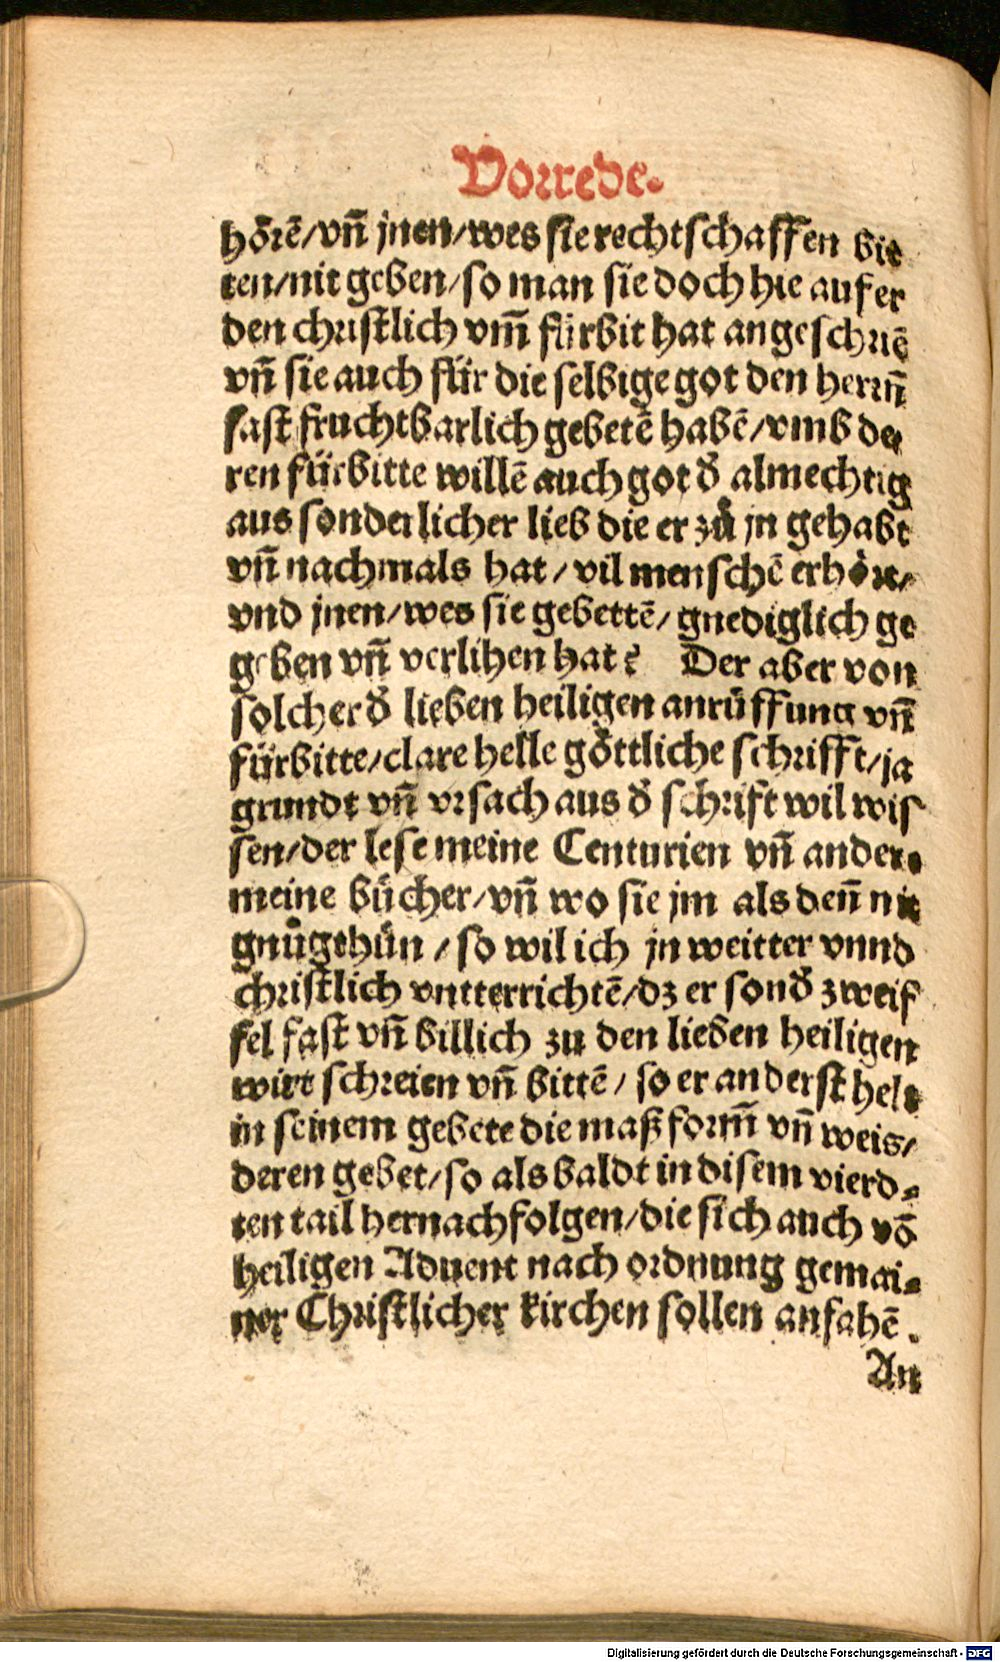 Vorrede.
hörē/vn̄ jnen/wes sie rechtschaffen bit
ten/nit geben/so man sie doch hie auf er
den christlich vm̄ fürbit hat angeschriē
vn̄ sie auch für die selbige got den herrn̄
fast fruchtbarlich gebetē habē/vmb de
ren fürbitte willē auch got d̄ almechtig
aus sonderlicher lieb die er zů jn gehabt
vn̄ nachmals hat/vil menschē erhört/
vnd jnen/wes sie gebettē/gnediglich ge
geben vn̄ verlihen hat? Der aber von
solcher d̄ lieben heiligen anrüffung vn̄
fürbitte/clare helle göttliche schrifft/ja
grundt vn̄ vrsach aus d̄ schrift wil wis
sen/der lese meine Centurien vn̄ ander
meine bücher/vn̄ wo sie jm als den̄ nit
gnůgthün/so wil ich jn weitter vnnd
christlich vntterrichtē/dz er sond̄ zweif
fel fast vn̄ billich zu den lieben heiligen
wirt schreien vn̄ bittē/so er anderst helt
in seinem gebete die maß form̄ vn̄ weis/
deren gebet/so als baldt in disem vierd-
ten tail hernach folgen/die sich auch vō
heiligen Aduent nach ordnung gemai-
ner Christlicher kirchen sollen anfahē.
An
Digitalisierung gefördert durch die Deutsche Forschungsgemeinschaft - DFG